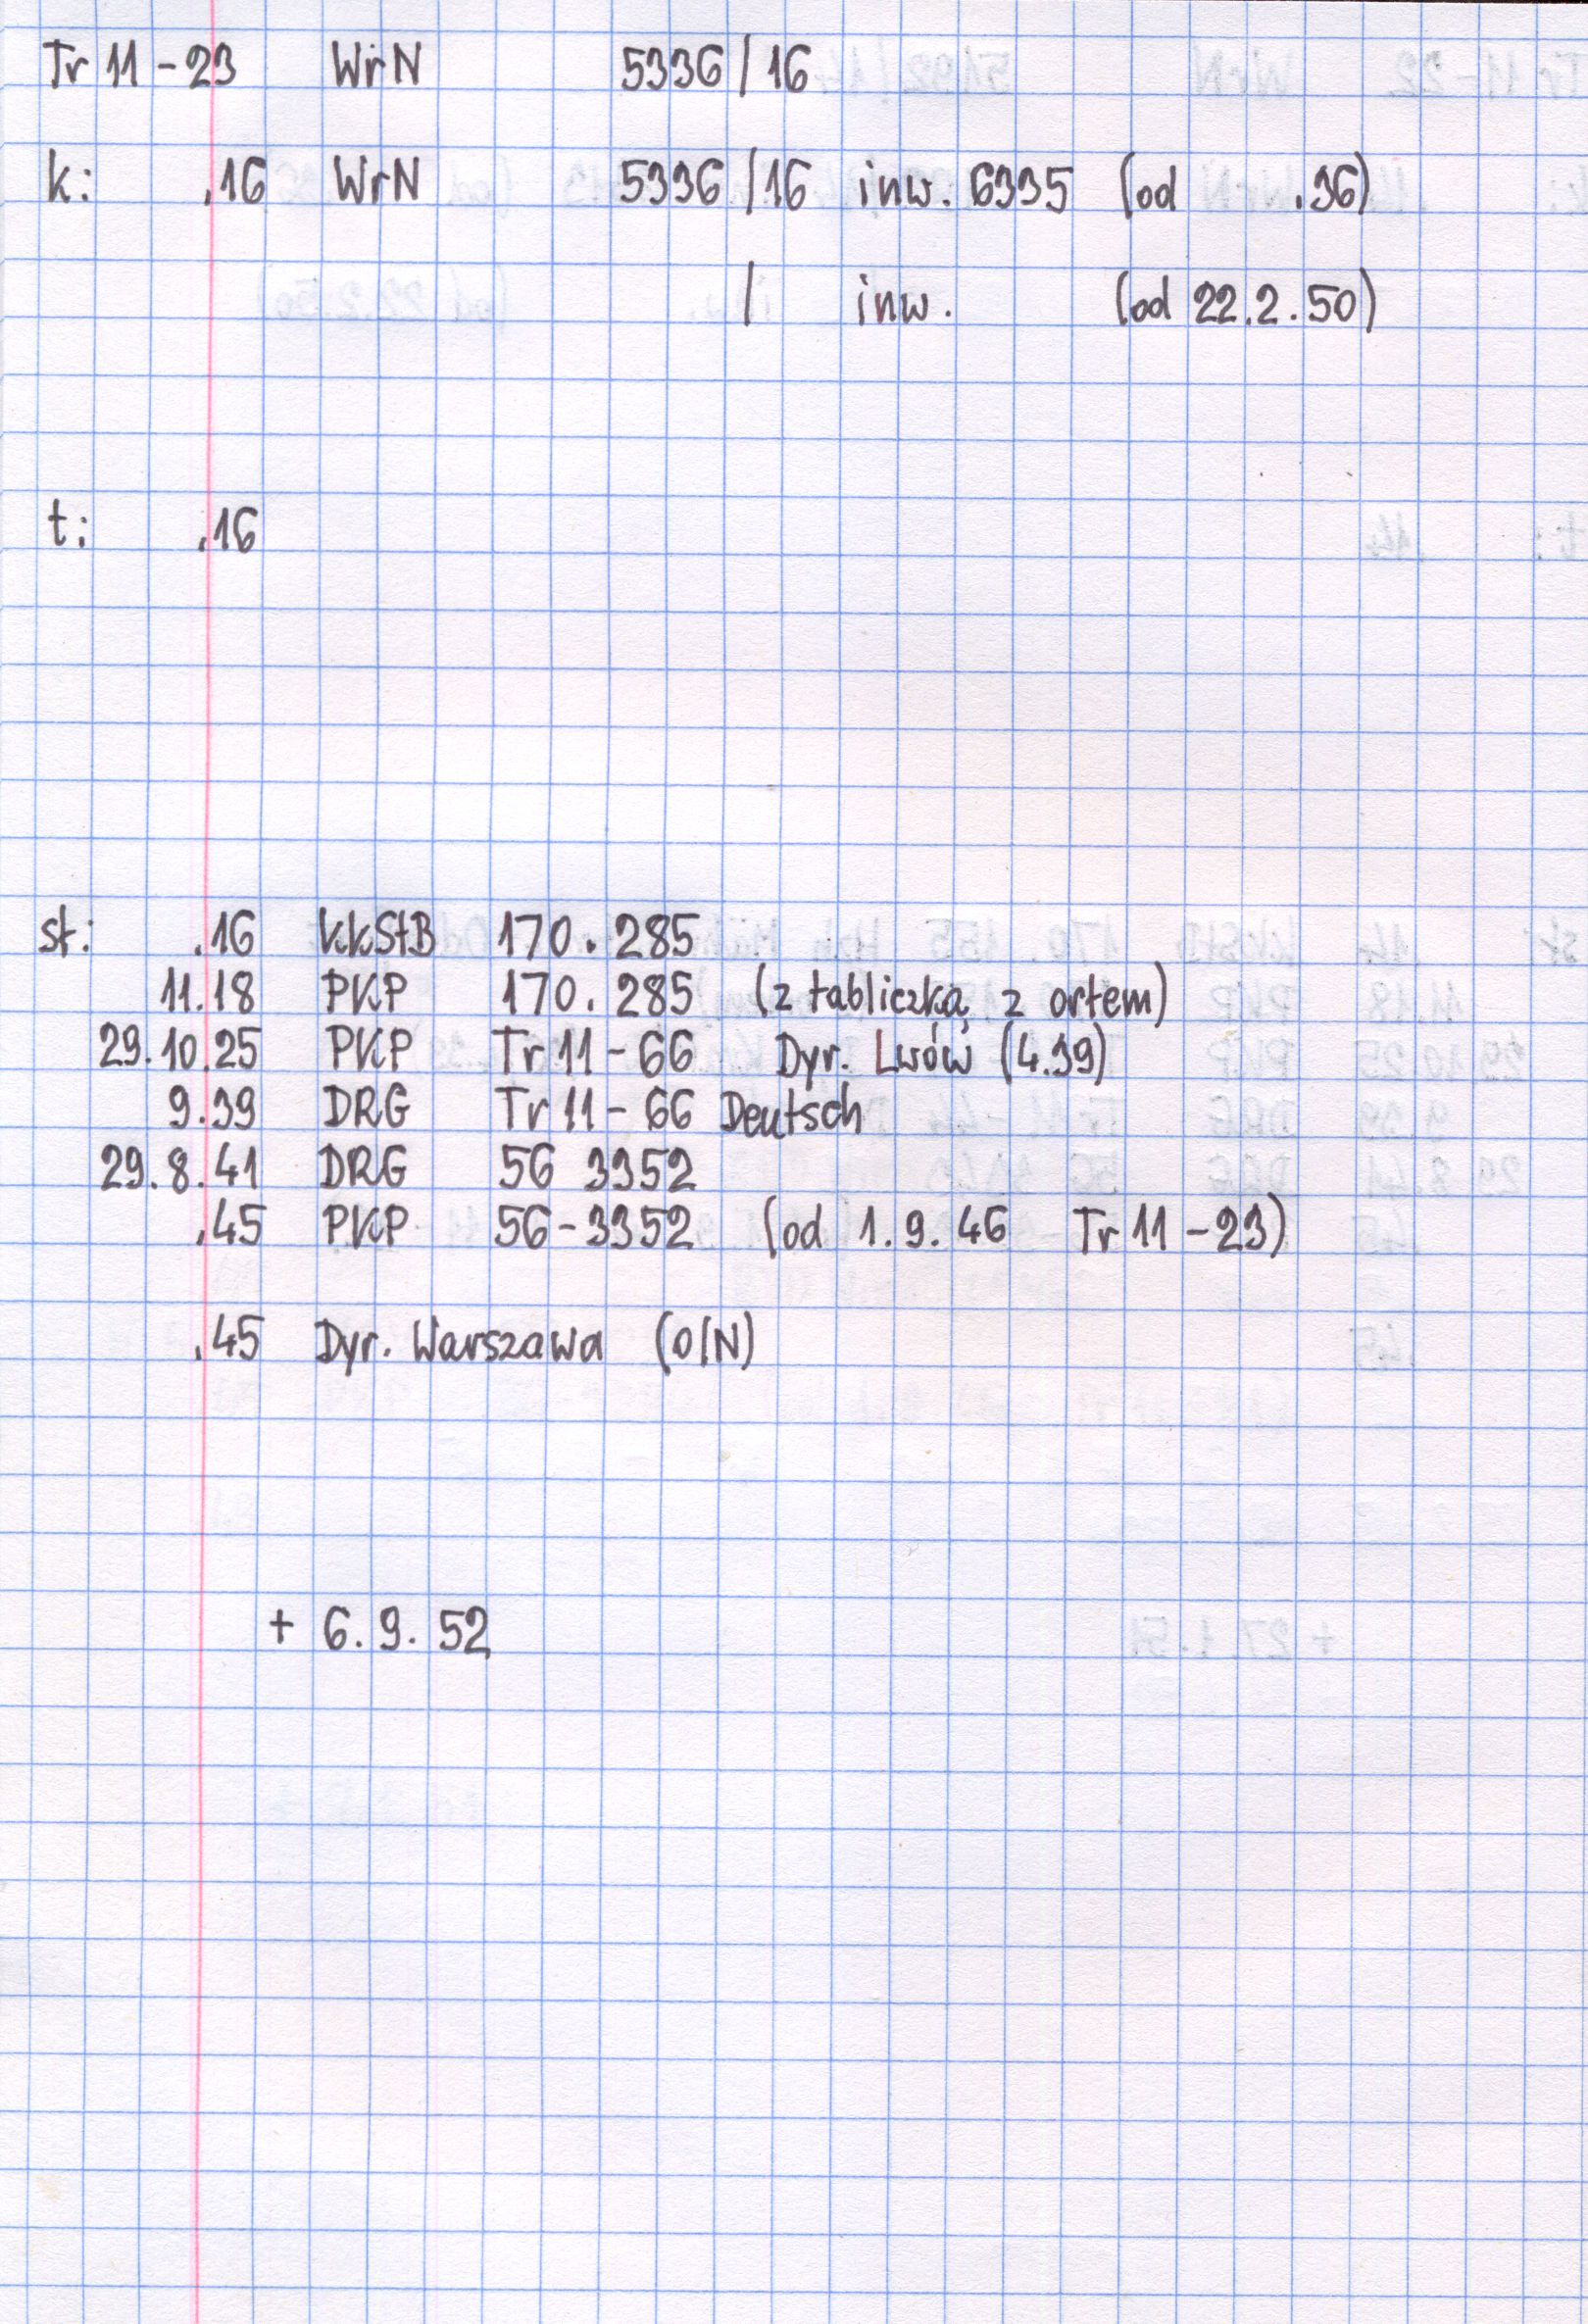 Tr 11-23 WrN 5336/16
k: .16 WrN 5336/16 inw. 6335 (od .36)
/ inw. (od 22.2.50)
t: .16
st: .16 kkStB 170.285
11.18 PKP 170.285 (z tabliczką z orłem)
29.10.25 PKP Tr 11-66 Dyr. Lwów (4.39)
9.39 DRG Tr 11-66 Deutsch
29.8.41 DRG 56 3352
.45 PKP 56-3352 (od 1.9.46 Tr 11-23)
.45 Dyr. Warszawa (O/N)
+ 6.9.52